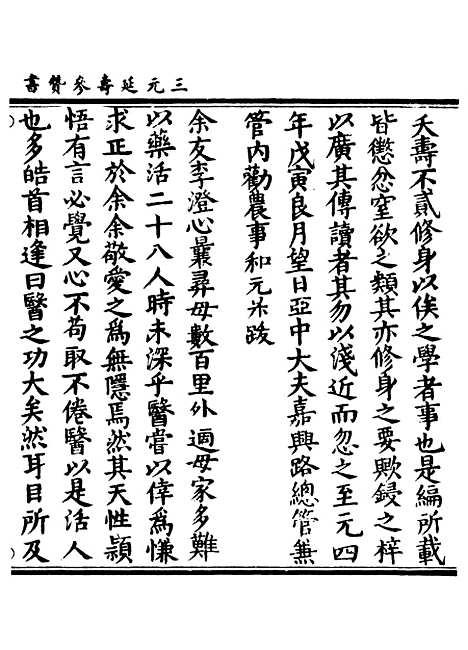 三元延壽參贊書
夭壽不貳修身以俟之學者事也是編所載
皆懲忿窒欲之類其亦修身之要歟鋟之梓
以廣其傳讀者其勿以淺近而忽之至元四
年戊寅良月望日亞中大夫嘉興路總管兼
管內勸農事和元昇跋
余友李澄心曩尋母數百里外適母家多難
以藥活二十八人時未深乎醫嘗以倖爲慊
求正於余余敬愛之爲無隱焉然其天性穎
悟有言必覺又心不苟取不倦醫以是活人
也多皓首相逢曰醫之功大矣然耳目所及